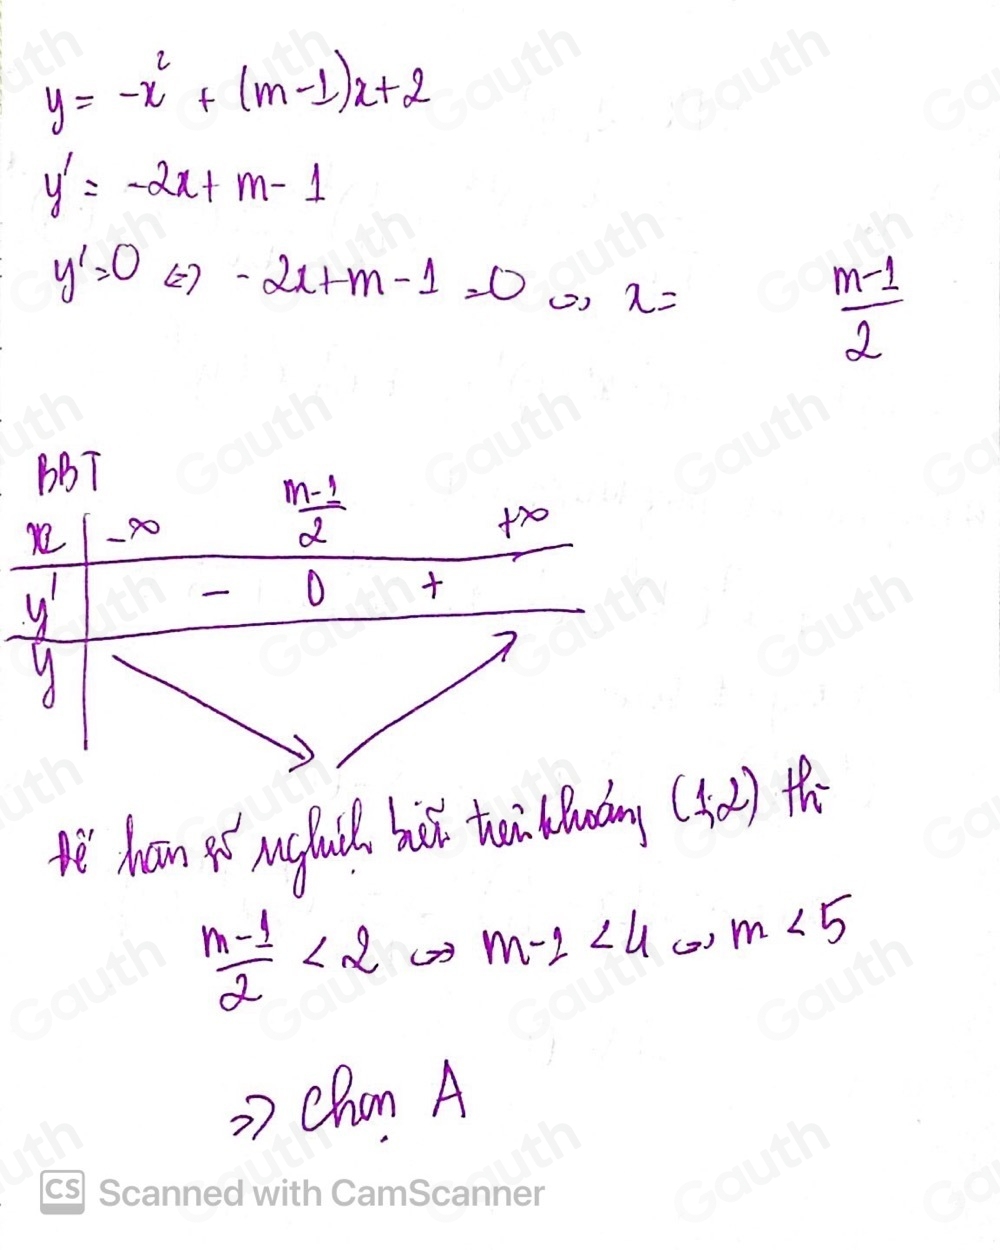 y = -x² + (m-1)x+2
y' = -2x + m - 1
y'=0 ⇔ -2x+m-1 =0 ⇔ x= \frac{m-1}{2}
BBT
x | -∞ \frac{m-1}{2} +∞
y' | - 0 +
y
để hàm số nghịch biến trên khoảng (1;2) thì
\frac{m-1}{2} < 2 ⇔ m-1 < 4 ⇔ m < 5
=> Chọn A
CS Scanned with CamScanner
Gauth